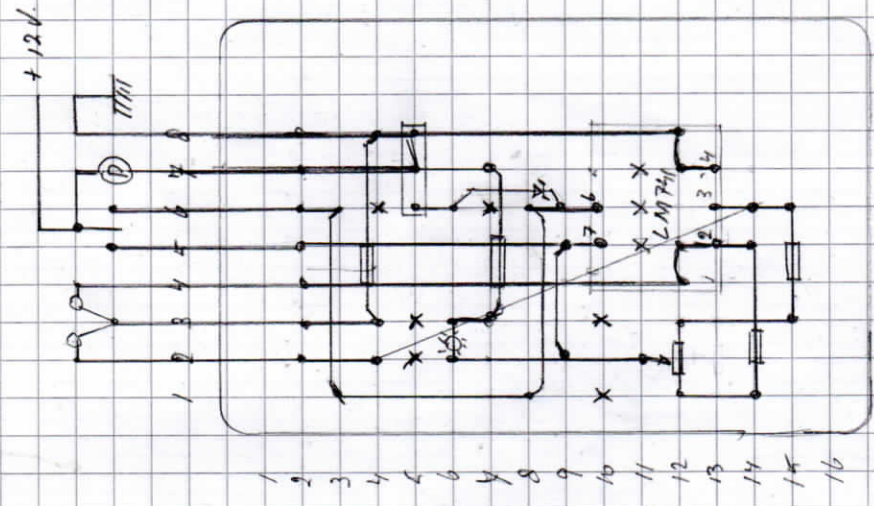 + 12V.
P
8
7
6
5
4
3
2
1
6
7
LM741
4
3
2
1
1
2
3
4
5
6
7
8
9
10
11
12
13
14
15
16